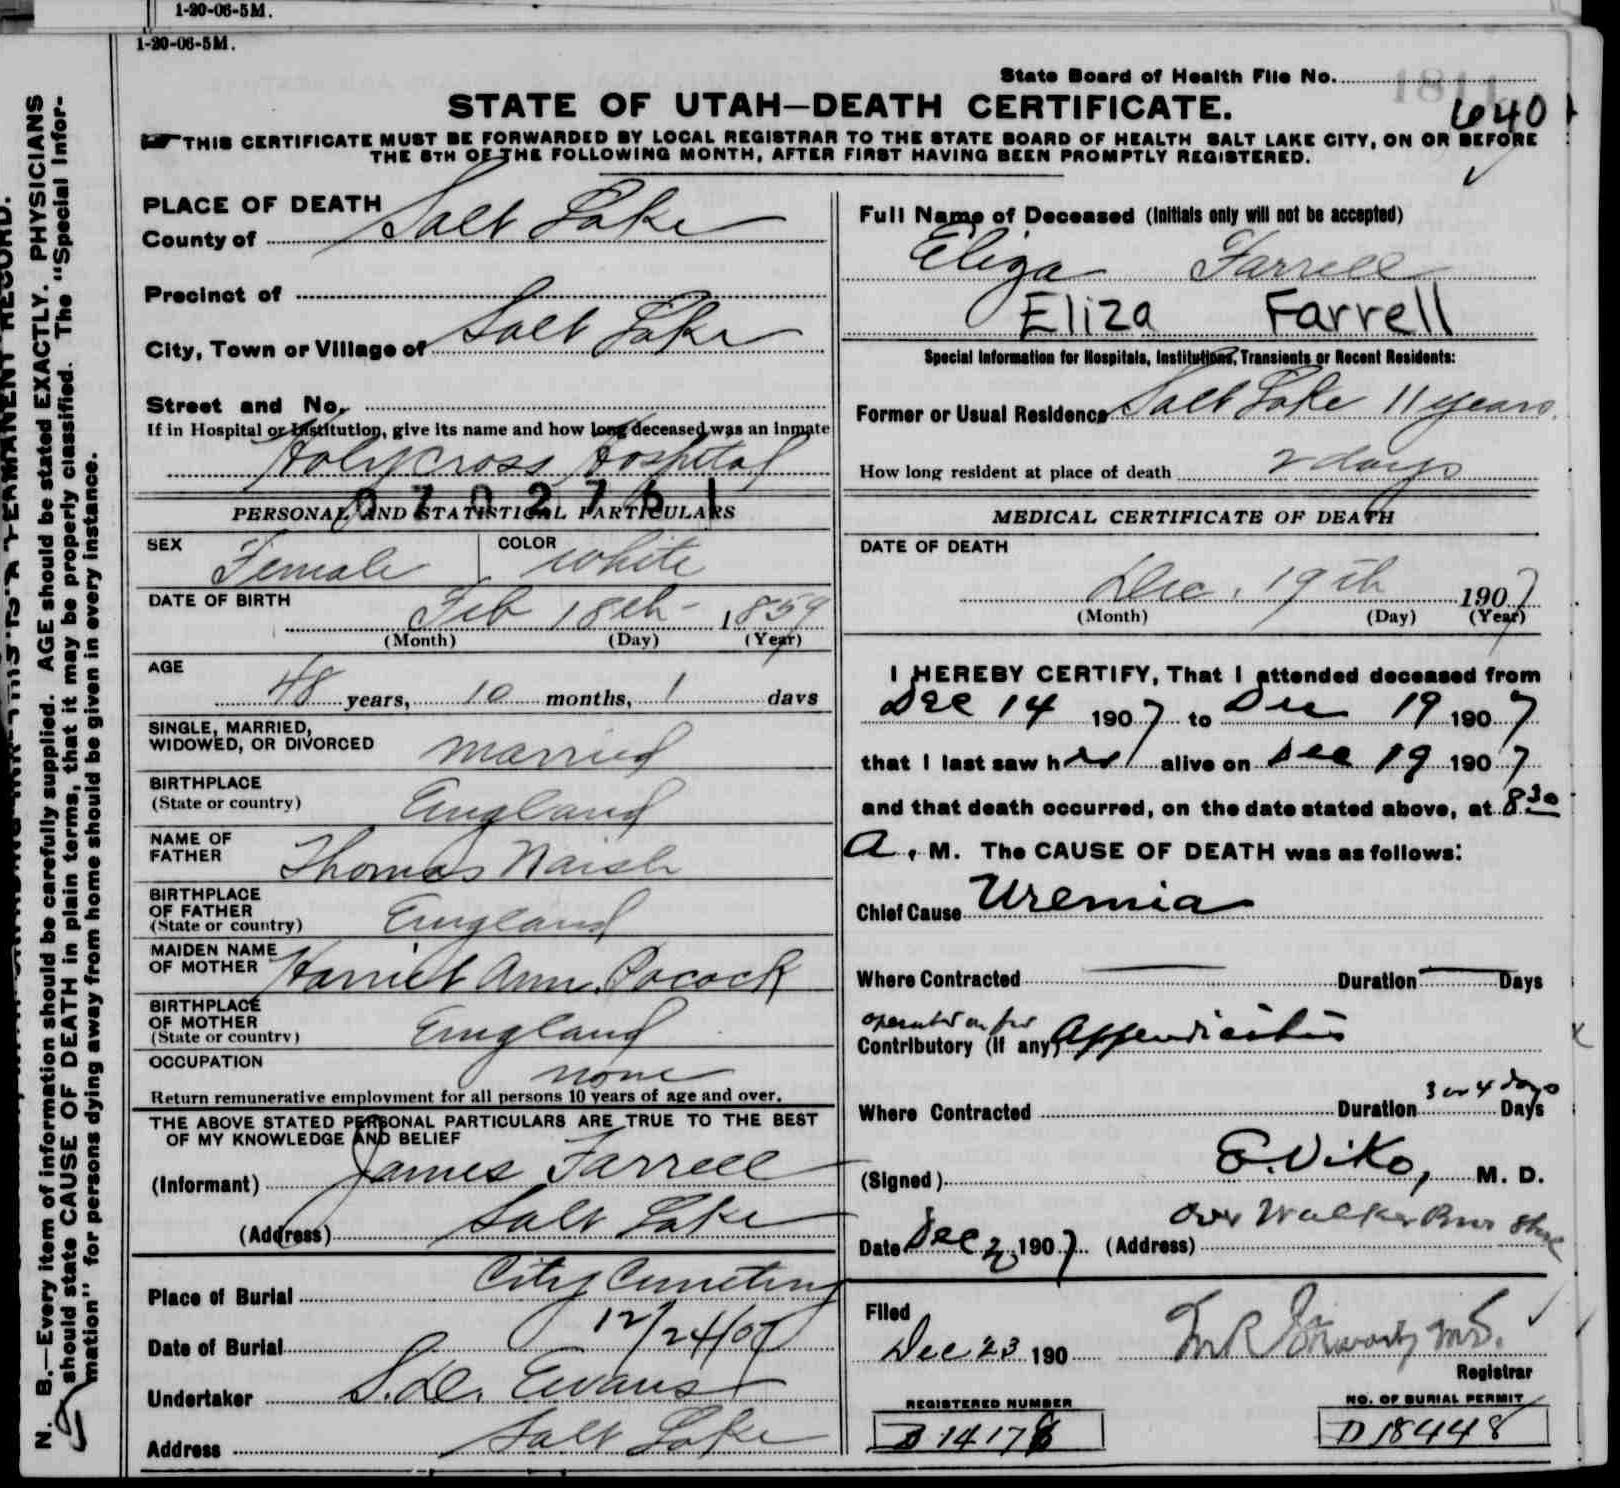 1-20-06-5M.
1-20-06-5M.
State Board of Health File No.
1811
640
STATE OF UTAH—DEATH CERTIFICATE.
THIS CERTIFICATE MUST BE FORWARDED BY LOCAL REGISTRAR TO THE STATE BOARD OF HEALTH SALT LAKE CITY, ON OR BEFORE
THE 5TH OF THE FOLLOWING MONTH, AFTER FIRST HAVING BEEN PROMPTLY REGISTERED.
N. B.—Every item of information should be carefully supplied. AGE should be stated EXACTLY. PHYSICIANS
should state CAUSE OF DEATH in plain terms, that it may be properly classified. The "Special Infor-
mation" for persons dying away from home should be given in every instance.
PLACE OF DEATH
County of Salt Lake
Precinct of
City, Town or Village of Salt Lake
Street and No.
If in Hospital or Institution, give its name and how long deceased was an inmate
Holy Cross Hospital
0702761
PERSONAL AND STATISTICAL PARTICULARS
SEX Female COLOR White
DATE OF BIRTH Feb 18th 1859
(Month) (Day) (Year)
AGE
48 years, 10 months, 1 days
SINGLE, MARRIED,
WIDOWED, OR DIVORCED Married
BIRTHPLACE
(State or country) England
NAME OF
FATHER Thomas Naish
BIRTHPLACE
OF FATHER
(State or country) England
MAIDEN NAME
OF MOTHER Harriet Ann Pocock
BIRTHPLACE
OF MOTHER
(State or country) England
OCCUPATION none
Return remunerative employment for all persons 10 years of age and over.
THE ABOVE STATED PERSONAL PARTICULARS ARE TRUE TO THE BEST
OF MY KNOWLEDGE AND BELIEF
(Informant) James Farrell
(Address) Salt Lake
Place of Burial City Cemetery
Date of Burial 12/24/07
Undertaker S. D. Evans
Address Salt Lake
Full Name of Deceased (Initials only will not be accepted)
Eliza Farrell
Eliza Farrell
Special Information for Hospitals, Institutions, Transients or Recent Residents:
Former or Usual Residence Salt Lake 11 years
How long resident at place of death 2 days
MEDICAL CERTIFICATE OF DEATH
DATE OF DEATH
Dec. 19th 1907
(Month) (Day) (Year)
I HEREBY CERTIFY, That I attended deceased from
Dec 14 1907 to Dec 19 1907
that I last saw her alive on Dec 19 1907
and that death occurred, on the date stated above, at 8.30
A. M. The CAUSE OF DEATH was as follows:
Chief Cause Uremia
Where Contracted Duration Days
operated on for
Contributory (if any) Appendicitis
3 or 4 days
Where Contracted Duration Days
(Signed) E. Viko, M. D.
over Walker Bros Store
Date Dec 1907 (Address)
Filed
Dec 23 190
Registrar
REGISTERED NUMBER
NO. OF BURIAL PERMIT
D 18448